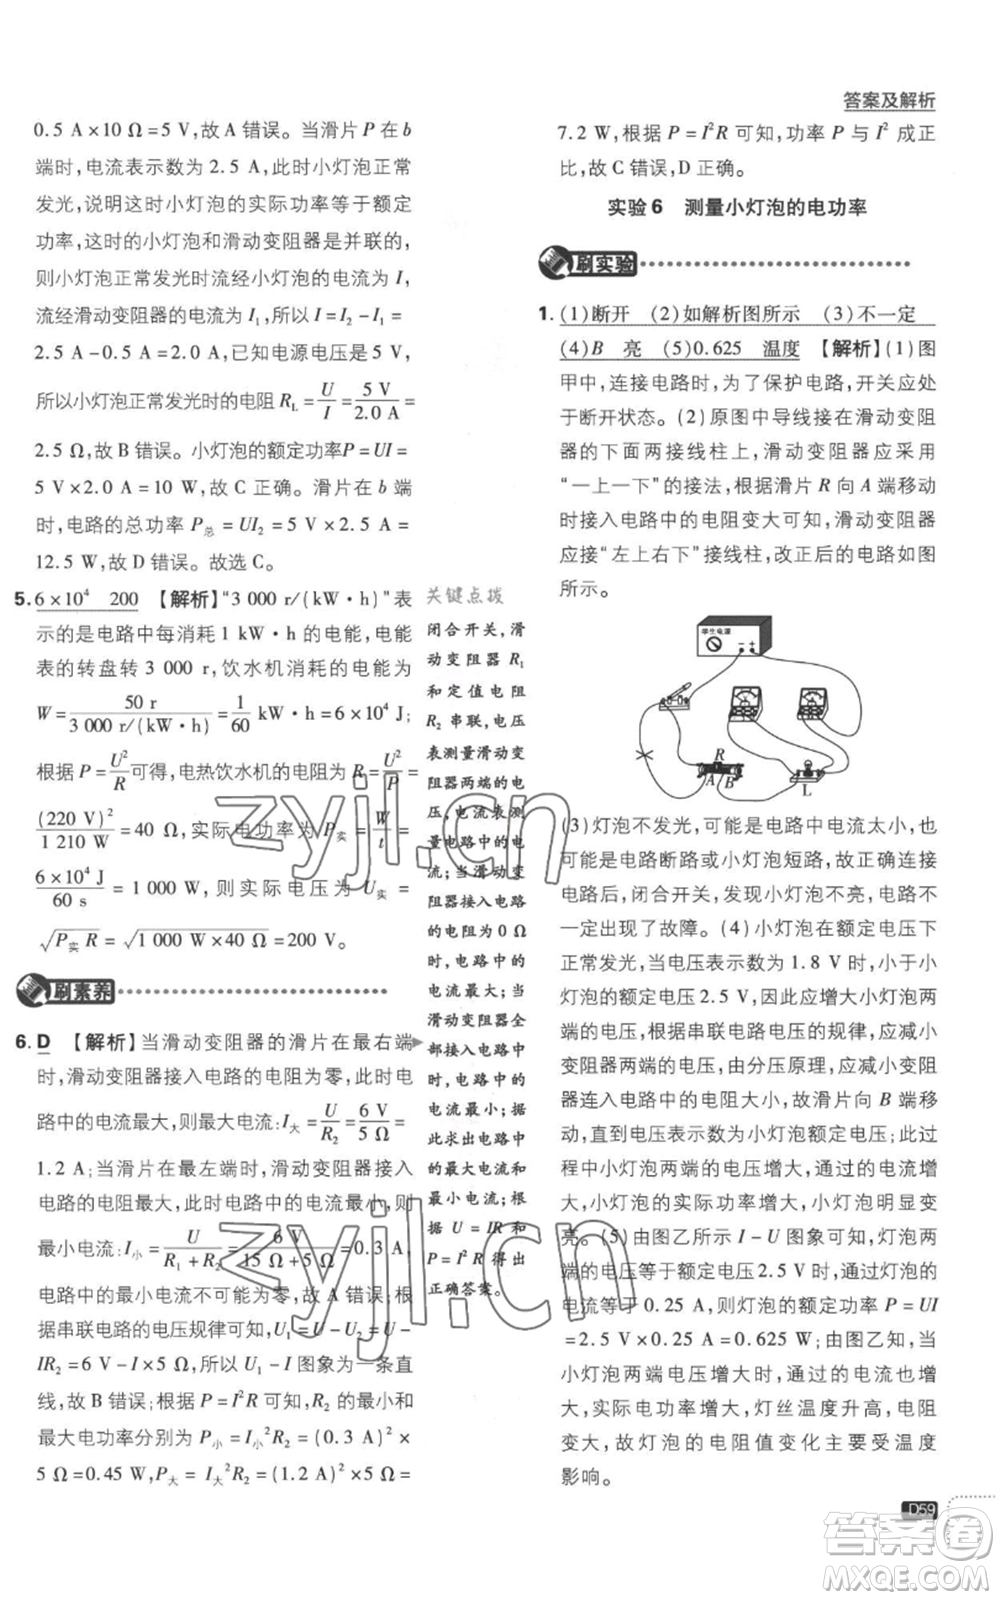 答案及解析
0.5 A×10 Ω=5 V,故A错误。当滑片 P 在 b
端时,电流表示数为 2.5 A,此时小灯泡正常
发光,说明这时小灯泡的实际功率等于额定
功率,这时的小灯泡和滑动变阻器是并联的,
则小灯泡正常发光时流经小灯泡的电流为 I,
流经滑动变阻器的电流为 I₁,所以 I=I₂-I₁=
2.5 A-0.5 A=2.0 A,已知电源电压为 5 V,
所以小灯泡正常发光时的电阻 R_L=U/I=5 V/2.0 A=
2.5 Ω,故 B 错误。小灯泡的额定功率P=UI=
5 V×2.0 A=10 W,故 C 正确。滑片在 b 端
时,电路的总功率 P总=UI₂=5 V×2.5 A=
12.5 W,故 D 错误。故选 C。
5. 6×10⁴ 200 【解析】“3 000 r/(kW·h)”表
示的是电路中每消耗 1 kW·h 的电能,电能
表的转盘转 3 000 r,饮水机消耗的电能为
W=50 r/3 000 r/(kW·h)=1/60 kW·h=6×10⁴ J;
根据 P=U²/R可得,电热饮水机的电阻为 R=U²/P=
(220 V)²/1 210 W=40 Ω,实际电功率为 P实=W/t=
6×10⁴ J/60 s=1 000 W,则实际电压为 U实=
√P实 R=√1 000 W×40 Ω=200 V。
刷素养
6. D 【解析】当滑动变阻器的滑片在最右端
时,滑动变阻器接入电路的电阻为零,此时电
路中的电流最大,则最大电流:I大=U/R₂=6 V/5 Ω=
1.2 A;当滑片在最左端时,滑动变阻器接入
电路的电阻最大,此时电路中的电流最小,则
最小电流:I小=U/R₁+R₂=6 V/15 Ω+5 Ω=0.3 A,
电路中的最小电流不可能为零,故 A 错误;根
据串联电路的电压规律可知,U₁=U-U₂=U-
IR₂=6 V-I×5 Ω,所以 U₁-I 图象为一条直
线,故 B 错误;根据 P=I²R 可知,R₂的最小和
最大电功率分别为 P小=I小²R₂=(0.3 A)²×
5 Ω=0.45 W,P大=I大²R₂=(1.2 A)²×5 Ω=
关键点拨
闭合开关,滑
动变阻器 R₁
和定值电阻
R₂ 串联,电压
表测量滑动变
阻器两端的电
压,电流表测
量电路中的电
流;当滑动变
阻器接入电路
的电阻为 0 Ω
时,电路中的
电流最大;当
滑动变阻器全
部接入电路中
时,电路中的
电流最小;据
此求出电路中
的最大电流和
最小电流;根
据 U=IR和
P=I²R 得出
正确答案。
7.2 W,根据 P=I²R 可知,功率 P 与 I² 成正
比,故 C 错误,D 正确。
实验 6 测量小灯泡的电功率
刷实验
1. (1)断开 (2)如解析图所示 (3)不一定
(4)B 亮 (5)0.625 温度 【解析】(1)图
甲中,连接电路时,为了保护电路,开关应处
于断开状态。(2)原图中导线接在滑动变阻
器的下面两接线柱上,滑动变阻器应采用
“一上一下”的接法,根据滑片 R 向 A 端移动
时接入电路中的电阻变大可知,滑动变阻器
应接“左上右下”接线柱,改正后的电路如图
所示。
学生电源
- +
R
A B
L
(3)灯泡不发光,可能是电路中电流太小,也
可能是电路断路或小灯泡短路,故正确连接
电路后,闭合开关,发现小灯泡不亮,电路不
一定出现了故障。(4)小灯泡在额定电压下
正常发光,当电压表示数为 1.8 V 时,小于小
灯泡的额定电压 2.5 V,应增大小灯泡两
端的电压,根据串联电路电压的规律,应减小
变阻器两端的电压,由分压原理,应减小变阻
器连入电路中的电阻大小,故滑片向 B 端移
动,直到电压表示数为小灯泡额定电压;此过
程中小灯泡两端的电压增大,通过的电流增
大,小灯泡的实际功率增大,小灯泡明显变
亮。(5)由图乙所示 I-U 图象可知,灯泡两
端的电压等于额定电压 2.5 V 时,通过灯泡的
电流等于 0.25 A,则灯泡的额定功率 P=UI
=2.5 V×0.25 A=0.625 W;由图乙知,当
小灯泡两端电压增大时,通过的电流也增大,
实际电功率增大,灯丝温度升高,电阻
变大,故灯泡的电阻值变化主要受温度
影响。
D59
zyjl.cn
zyjl.cn
答案卷